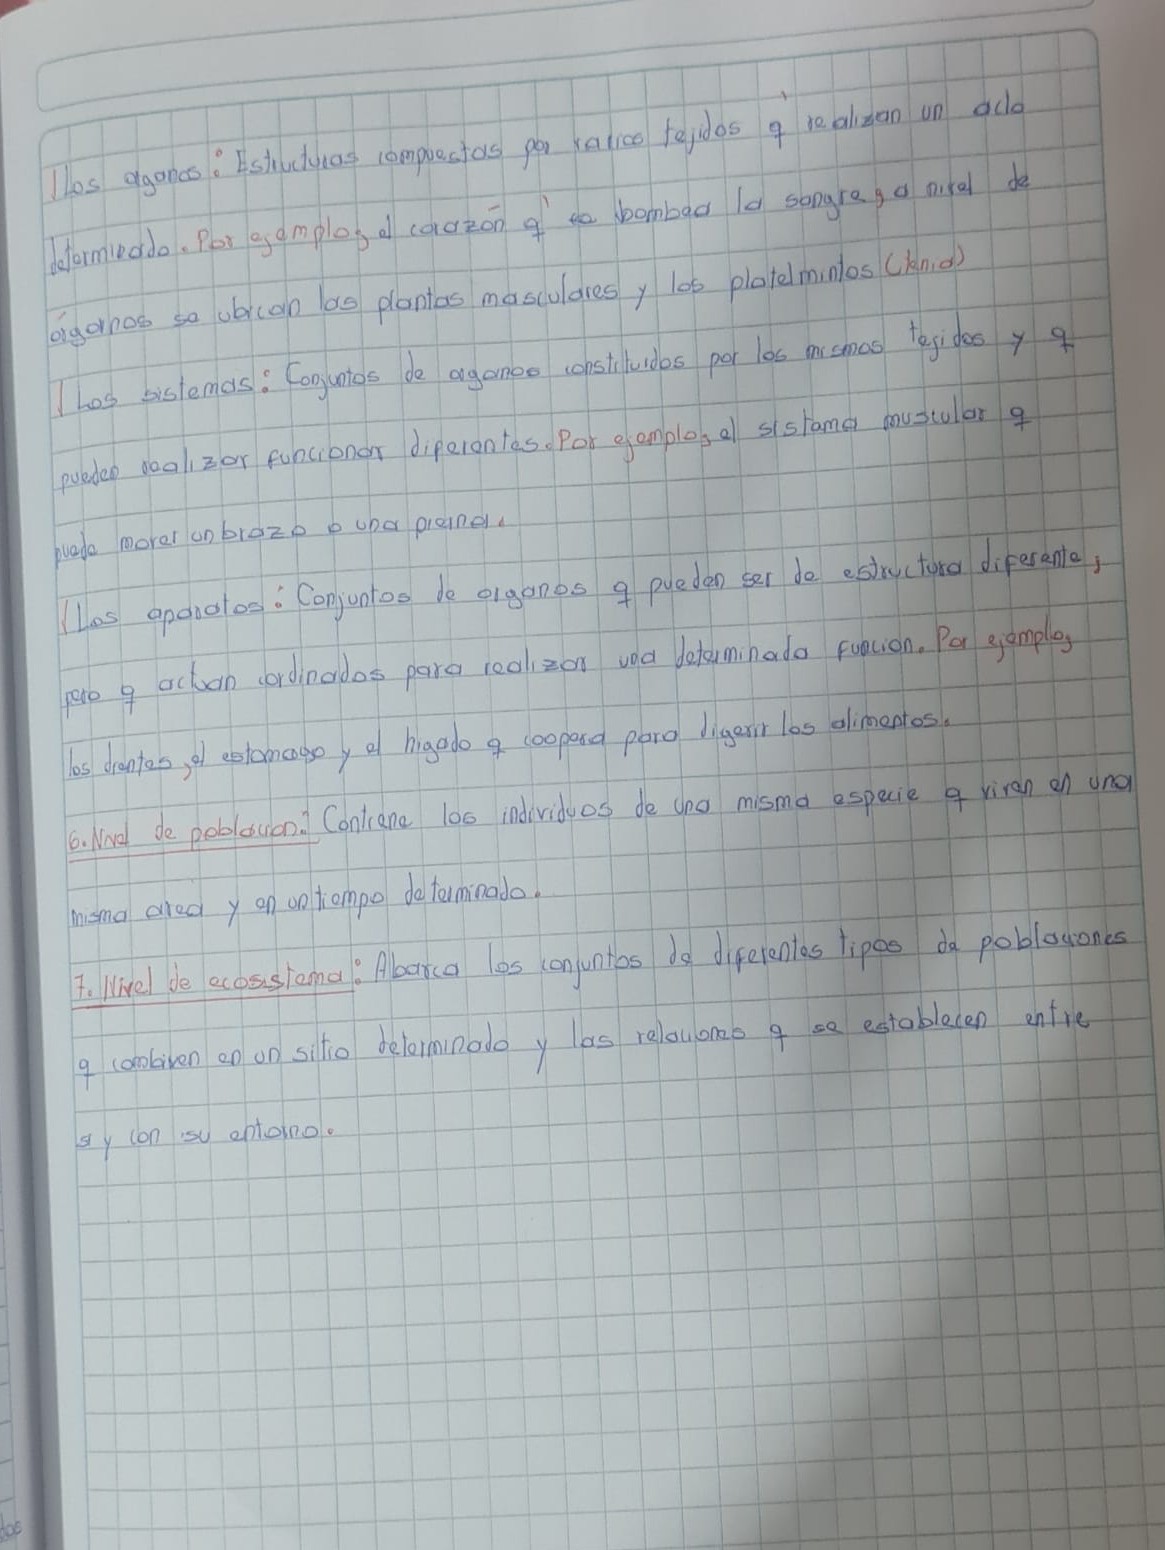 Los organos: Estructuras compuestas por varios tejidos q realizan un acto
determinado. Por ejemplo, el corazón q bombea la sangre, a nivel de
órganos se ubican las plantas masculares y los platelmintos (tenia)
Los sistemas: Conjuntos de organos constituidos por los mismos tegidos y q
pueden realizar funcionar diferentes. Por ejemplo, el sistema muscular q
puede mover un brazo o una pierna.
Los aparatos: Conjuntos de organos q pueden ser de estructura diferente,
pero q actuan cordinados para realizar una determinada funcion. Por ejemplo,
los dientes, el estomago y el higado q coopera para digerir los alimentos.
6. Nivel de poblacion: Contiene los individuos de una misma especie q viven en una
misma area y en un tiempo determinado.
7. Nivel de ecosistema: Abarca los conjuntos de diferentes tipos de poblaciones
q combiven en un sitio determinado y las relaciones q se establecen entre
si y con su entorno.